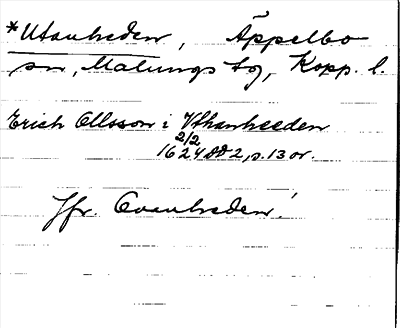 *Utanheden, Äppelbo
sn, Malungs tg, Kopp. l.
Erich Ollsson i Vthanheeden
2/2
1624 DD 2, s. 13 or.
Jfr. Ovanheden!